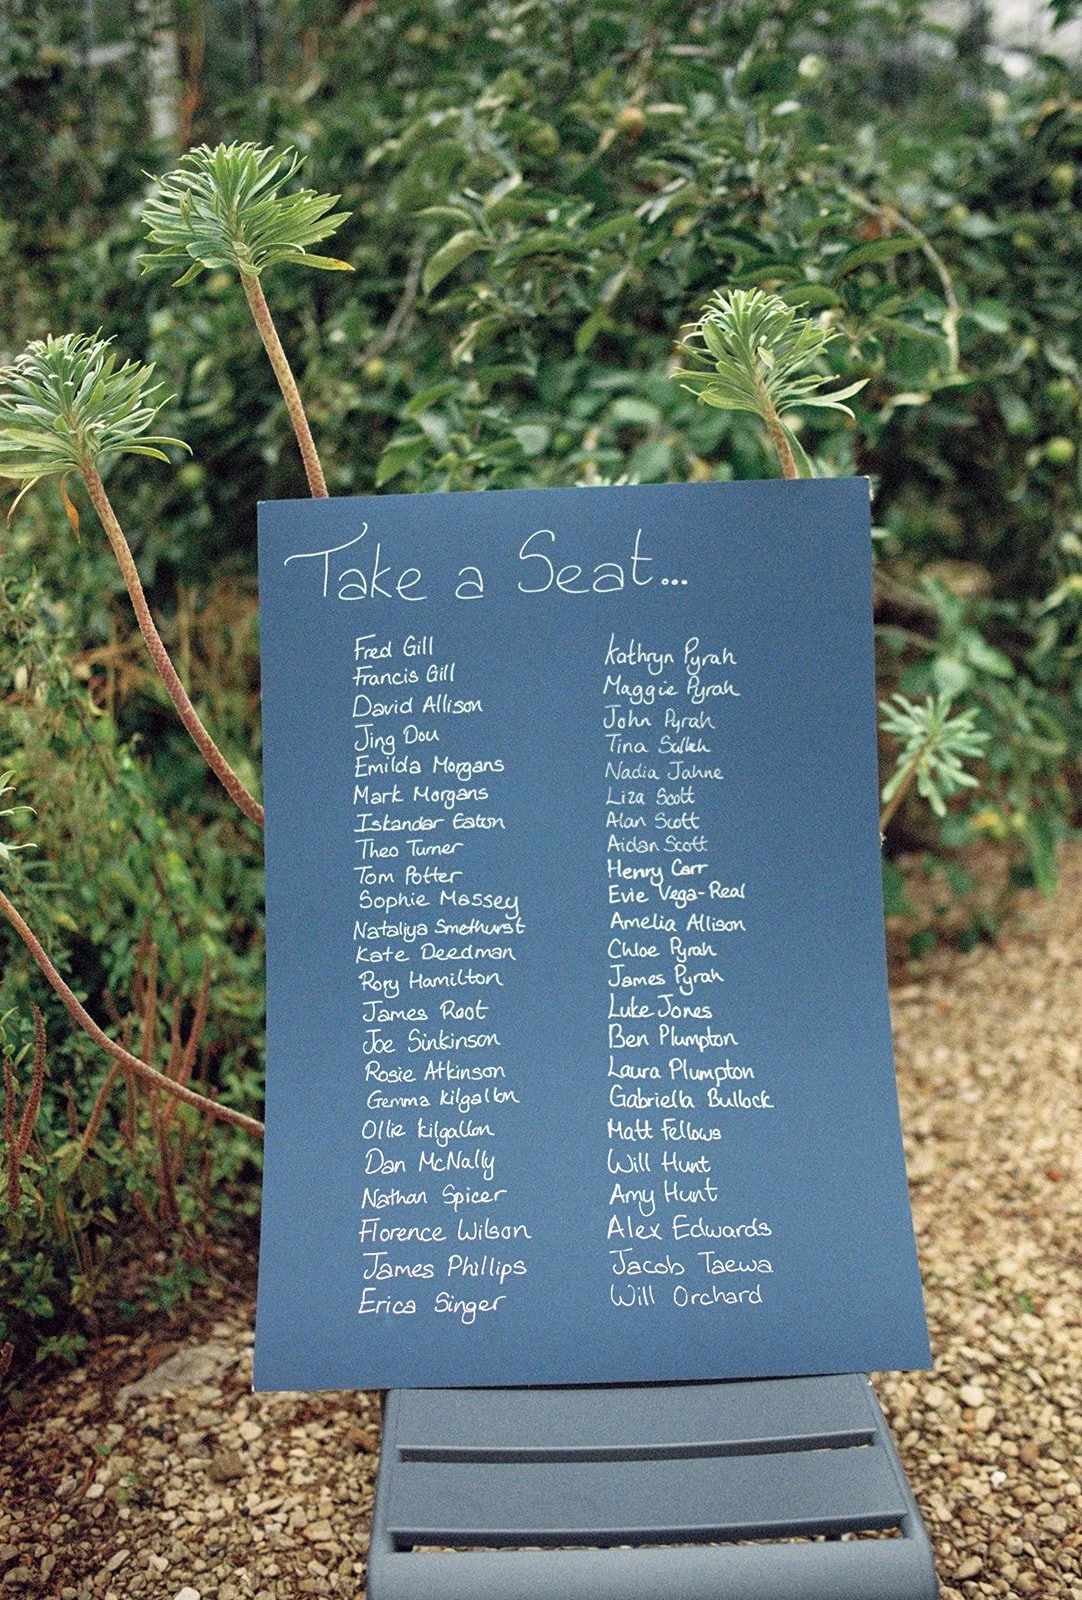 Take a Seat...
Fred Gill
Francis Gill
David Allison
Jing Dou
Emilda Morgans
Mark Morgans
Iskandar Eaton
Theo Turner
Tom Potter
Sophie Massey
Nataliya Smethurst
Kate Deedman
Rory Hamilton
James Root
Joe Sinkinson
Rosie Atkinson
Gemma Kilgallon
Ollie Kilgallon
Dan McNally
Nathan Spicer
Florence Wilson
James Phillips
Erica Singer
Kathryn Pyrah
Maggie Pyrah
John Pyrah
Tina
Nadia Jahne
Liza Scott
Alan Scott
Aidan Scott
Henry Carr
Evie Vega-Real
Amelia Allison
Chloe Pyrah
James Pyrah
Luke Jones
Ben Plumpton
Laura Plumpton
Gabriella Bullock
Matt Fellows
Will Hunt
Amy Hunt
Alex Edwards
Jacob Taewa
Will Orchard